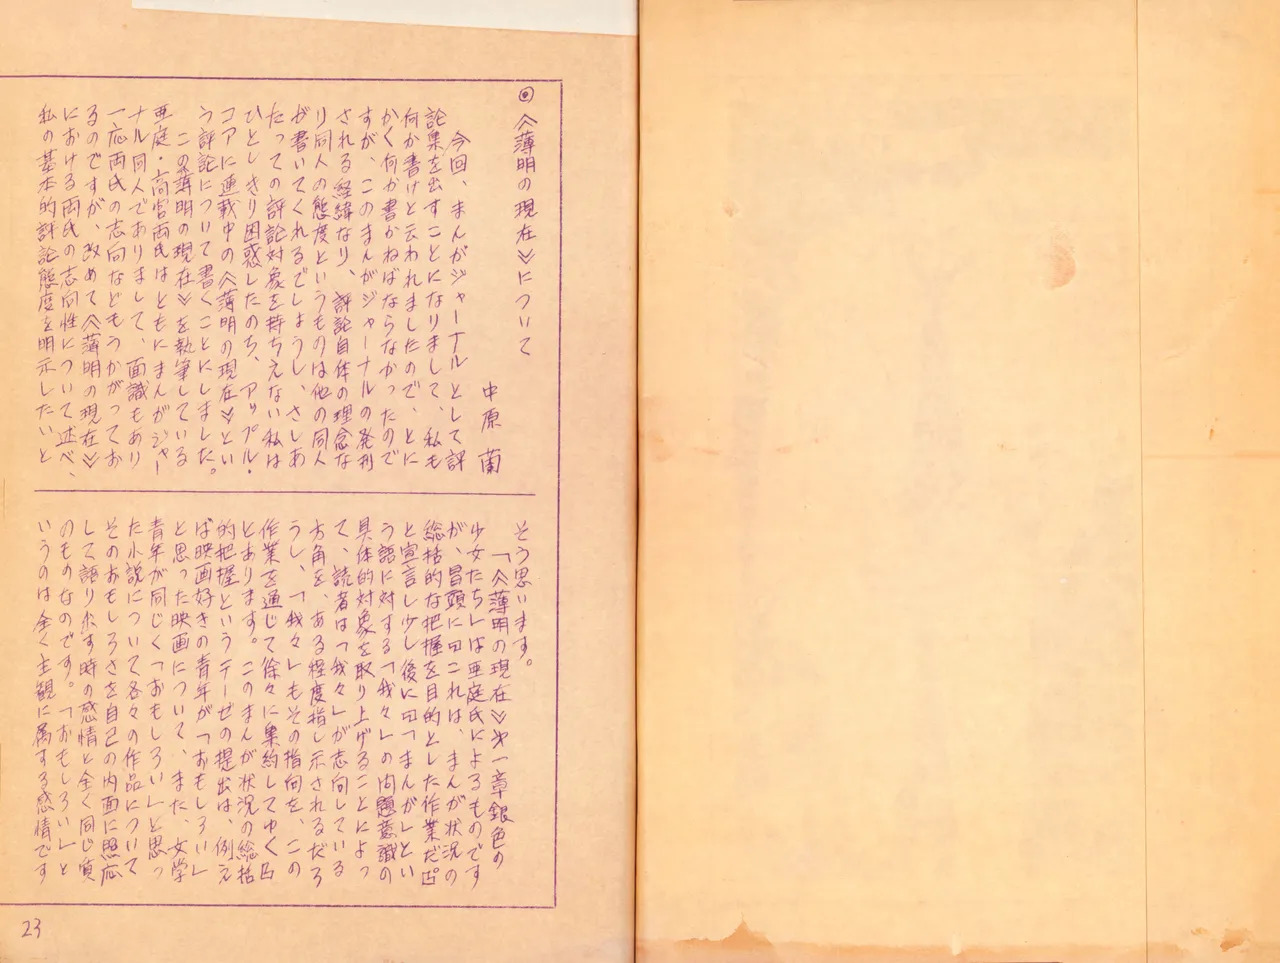 ◎《薄明の現在》について
中原 蘭
今回、まんがジャーナルとして評
論集を出すことになりまして、私も
何か書けと云われましたので、とに
かく何か書かねばならなかったので
すが、このまんがジャーナルの発刊
される経緯なり、評論自体の理念な
り同人の態度というものは他の同人
が書いてくれるでしょうし、さしあ
たっての評論対象を持ちえない私は
ひとしきり困惑したのち、アップル・
コアに連載中の《薄明の現在》とい
う評論について書くことにしました。
この《薄明の現在》を執筆している
亜庭・高宮両氏はともにまんがジャー
ナル同人でありまして、面識もあり
一応両氏の志向などもうかがってお
るのですが、改めて《薄明の現在》
における両氏の志向性について述べ、
私の基本的評論態度を明示したいと
そう思います。
「《薄明の現在》第一章銀色の
少女たち」は亜庭氏によるものです
が、冒頭に『これは、まんが状況の
総括的な把握を目的とした作業だ』
と宣言し少し後に『「まんが」とい
う語に対する「我々」の問題意識の
具体的対象を取り上げることによっ
て、読者は「我々」が志向している
方角を、ある程度指し示されるだろ
うし、「我々」もその指向を、この
作業を通じて徐々に集約してゆく』
とあります。このまんが状況の総括
的把握というテーゼの提出は、例え
ば映画好きの青年が「おもしろい」
と思った映画について、また、文学
青年が同じく「おもしろい」と思っ
た小説について各々の作品について
そのおもしろさを自己の内面に照応
して語り示す時の感情と全く同じ質
のものなのです。「おもしろい」と
いうのは全く主観に属する感情です
23